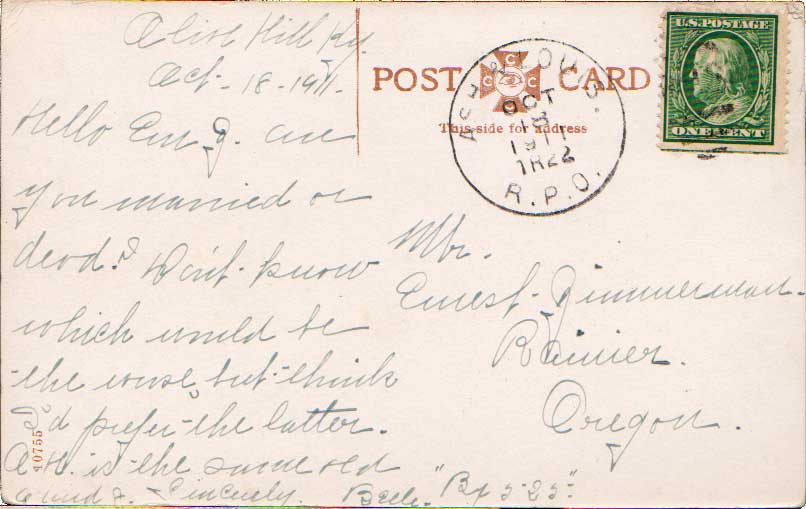 Olive Hill Ky.
Oct - 18 - 1911.
Hello Ern. J. are
you married or
dead? Don't know
which would be
the worse, but think
I'd prefer the latter.
O. H. is the same old
Sincerely. Belle. "Bx 525".
10755
POST CARD
This side for address
C C C C
ASH & LOUIS.
OCT
18
1911
TR22
R.P.O.
U.S. POSTAGE
ONE CENT
Mr.
Ernest Zimmerman.
Rainier.
Oregon.